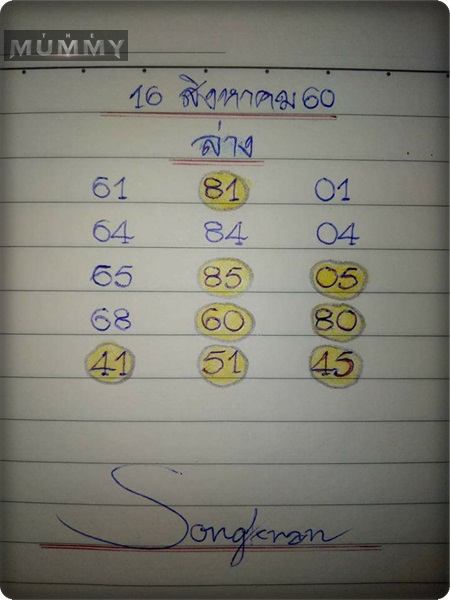 THE
MUMMY
16 สิงหาคม 60
ล่าง
61 81 01
64 84 04
65 85 05
68 60 80
41 51 45
Songkran